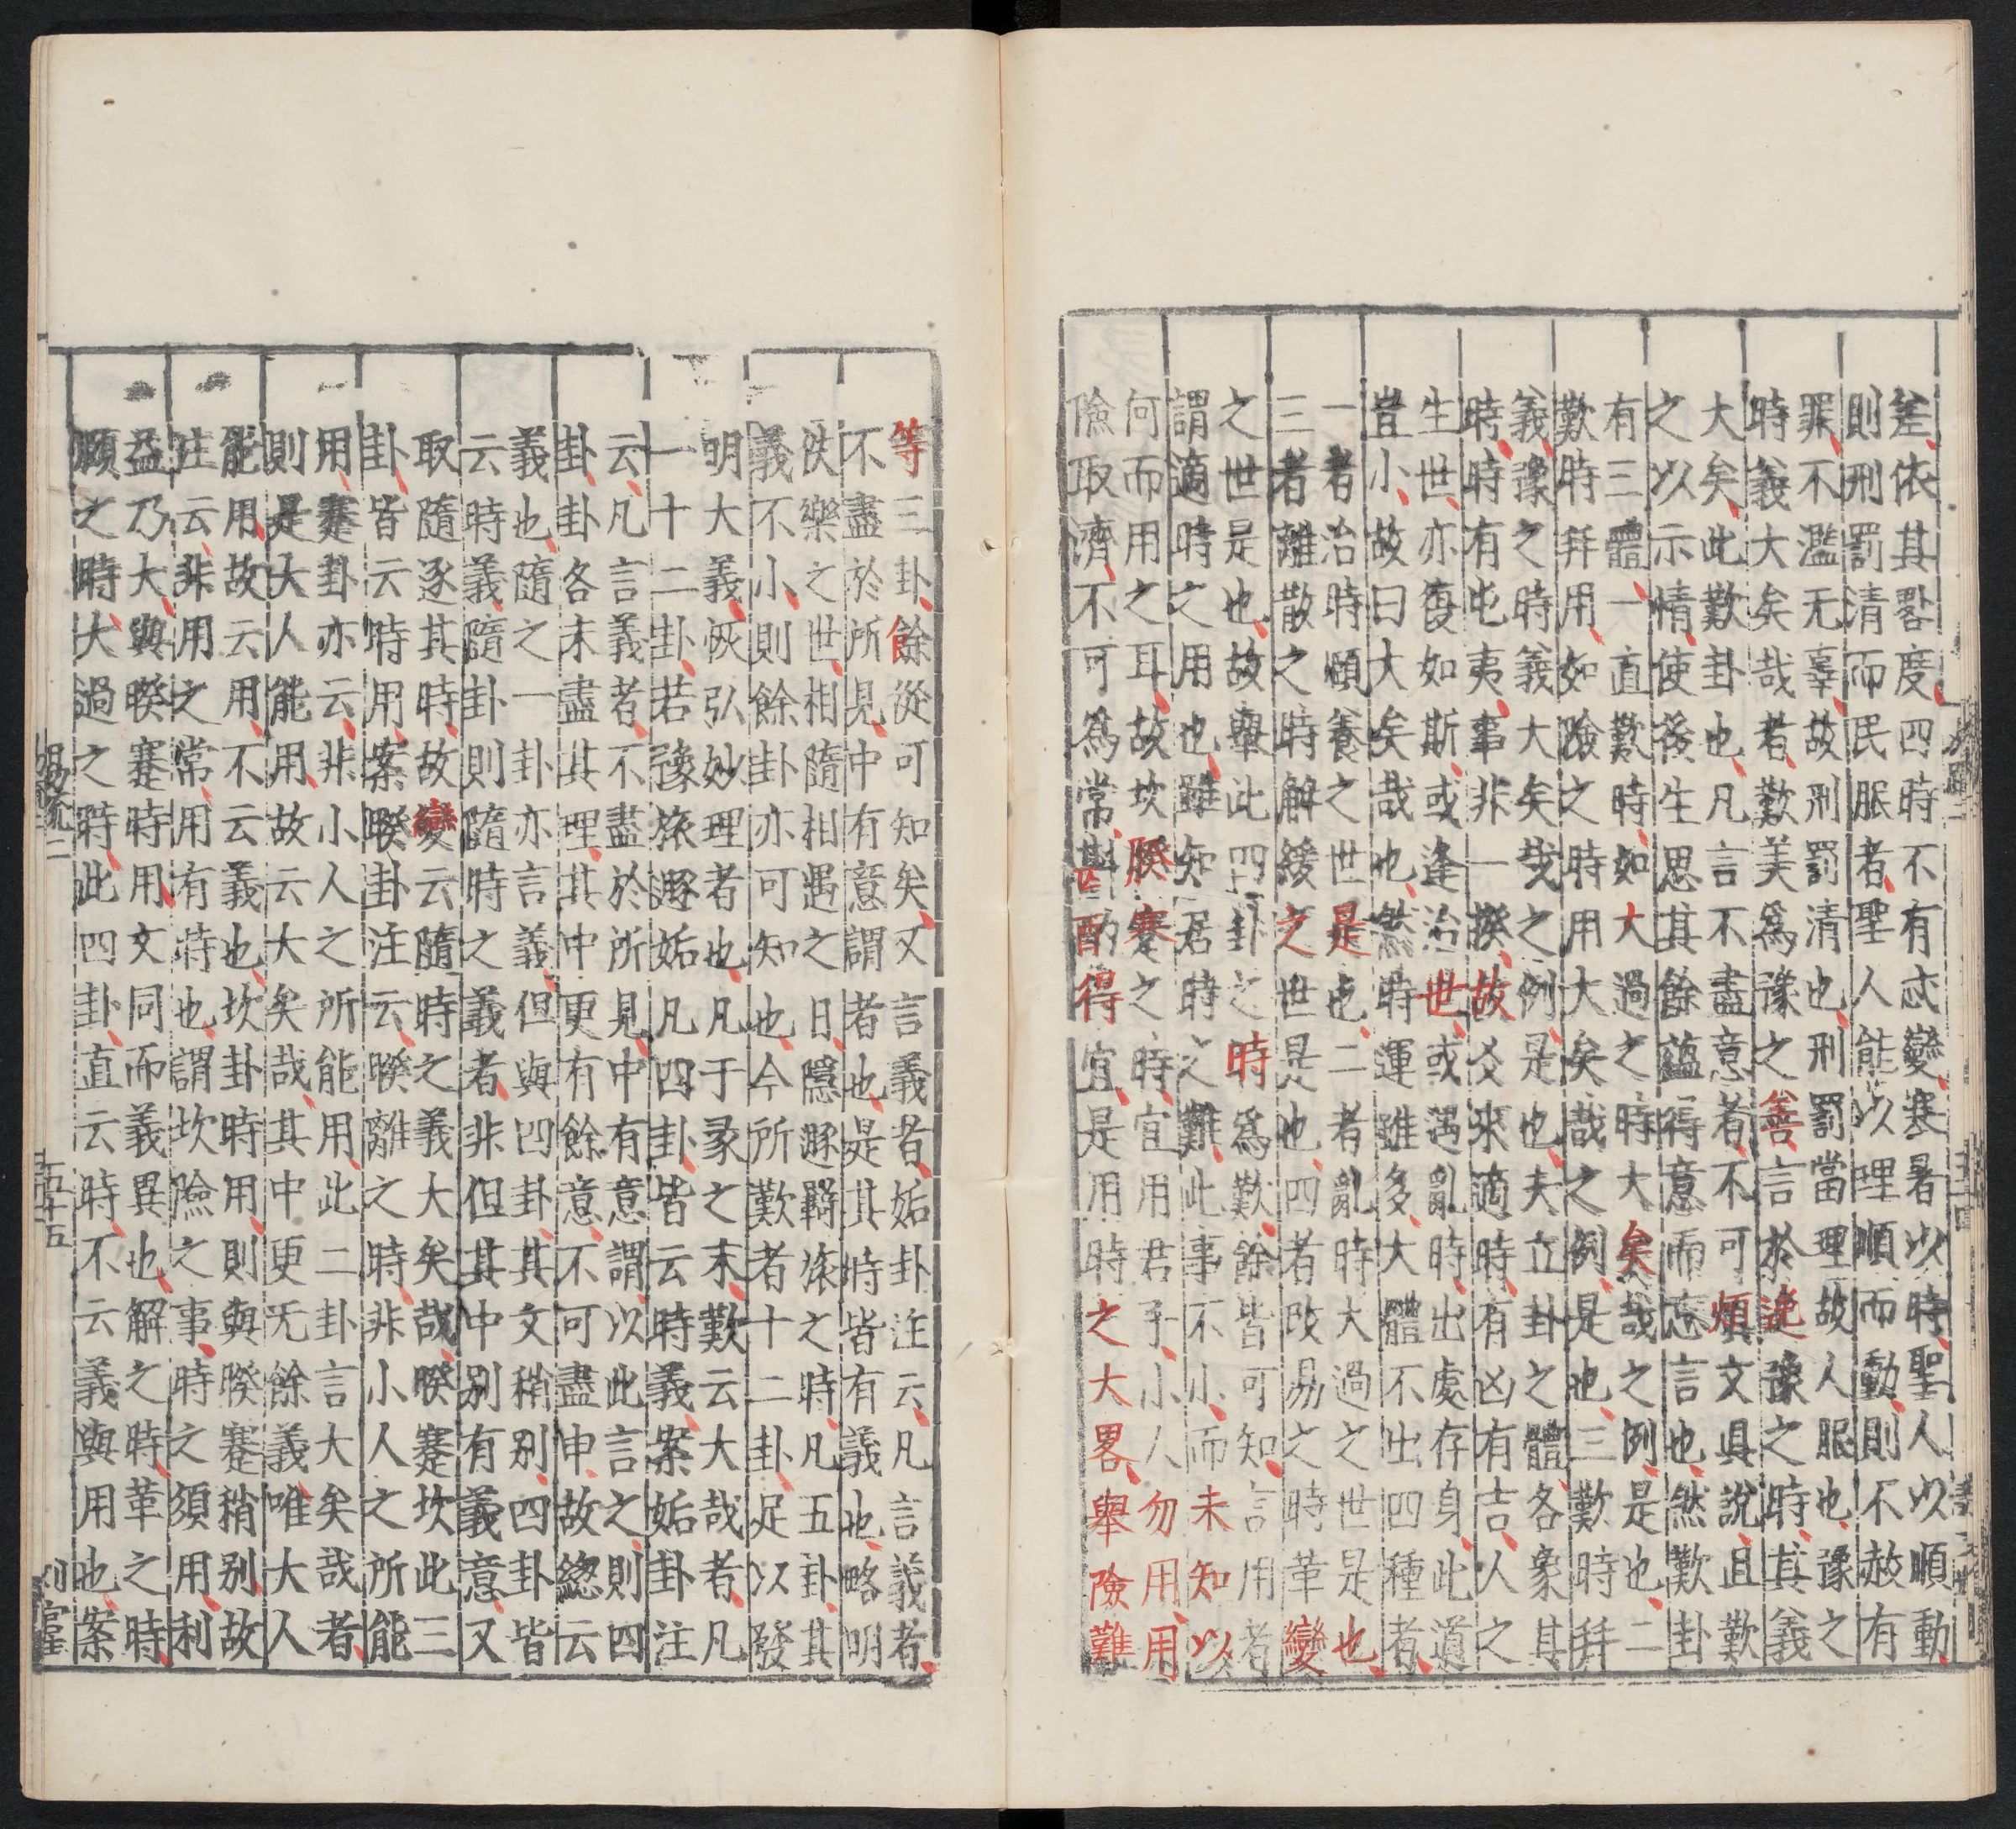 差依其晷度四時不有忒變寒暑以時聖人以順動
則刑罰清而民服者聖人能以理順而動則不赦有
罪不濫无辜故刑罰清也刑罰當理故人服也豫之
時義大矣哉者歎美爲豫之善言於逸豫之時其義
大矣此歎卦也凡言不盡意者不可煩文具說且歎
之以示情使後生思其餘蘊得意而忘言也然歎卦
有三體一直歎時如大過之時大矣哉之例是也二
歎時并用如險之時用大矣哉之例是也三歎時幷
義豫之時義大矣㢤之例是也夫立卦之體各象其
時時有屯夷事非一揆故爻來適時有凶有吉人之
生世亦復如斯或逢治世或遇亂時出處存身此道
豈小故曰大矣哉也然時運雖多大體不出四種者
一者治時頤養之世是也二者亂時大過之世是也
三者離散之時解緩之世是也四者改易之時革變
之世是也故舉此四卦之時爲歎餘皆可知言用者
謂適時之用也雖知居時之難此事不小而未知以
何而用之耳故坎睽蹇之時宜用君子小人勿用用
險取濟不可爲常斟酌得宜是用時之大畧舉險難
等三卦餘從可知矣又言義者姤卦注云凡言義者
不盡於所見中有意謂者也是其時皆有義也略明
佚樂之世相隨相遇之日隱遯羇旅之時凡五卦其
義不小則餘卦亦可知也今所歎者十二卦足以發
明大義恢弘妙理者也凡于彖之末歎云大哉者凡
一十二卦若豫旅遯姤凡四卦皆云時義案姤卦注
云凡言義者不盡於所見中有意謂以此言之則四
卦卦各末盡其理其中更有餘意不可盡申故緫云
義也隨之一卦亦言義但與四卦其文稍別四卦皆
云時義隨卦則隨時之義者非但其中別有義意又
取隨逐其時故變云隨時之義大矣哉睽蹇坎此三
卦皆云時用案睽卦注云睽離之時非小人之所能
用蹇卦亦云非小人之所能用此二卦言大矣哉者
則是大人能用故云大矣哉其中更无餘義唯大人
能用故云用不云義也坎卦時用則與睽蹇稍別故
注云非用之常用有時也謂坎險之事時之須用利
益乃大與睽蹇時用文同而義異也解之時革之時
頤之時大過之時此四卦直云時不云義與用也案
易疏二
五十五